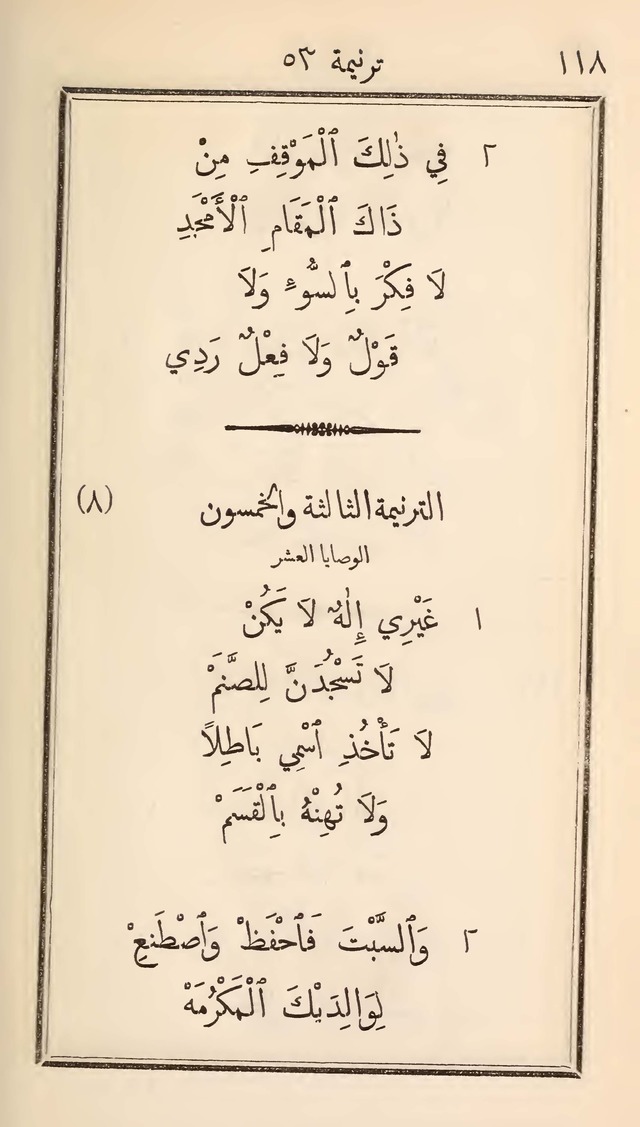 ١١٨ ترنيمة ٥٣
٢ فِي ذٰلِكَ ٱلْمَوْقِفِ مِنْ
ذَاكَ ٱلْمَقَامِ ٱلْأَمْجَدِ
لَا فِكْرَ بِٱلسُّوءِ وَلَا
قَوْلٌ وَلَا فِعْلٌ رَدِي
الترنيمة الثالثة والخمسون (٨)
الوصايا العشر
١ غَيْرِي إِلٰهٌ لَا يَكُنْ
لَا تَسْجُدَنَّ لِلصَّنَمْ
لَا تَأْخُذِ ٱسْمِي بَاطِلًا
وَلَا تُهِنْهُ بِٱلْقَسَمْ
٢ وَٱلسَّبْتَ فَٱحْفَظْ وَٱصْطَنِعْ
لِوَالِدَيْكَ ٱلْمَكْرُمَهْ